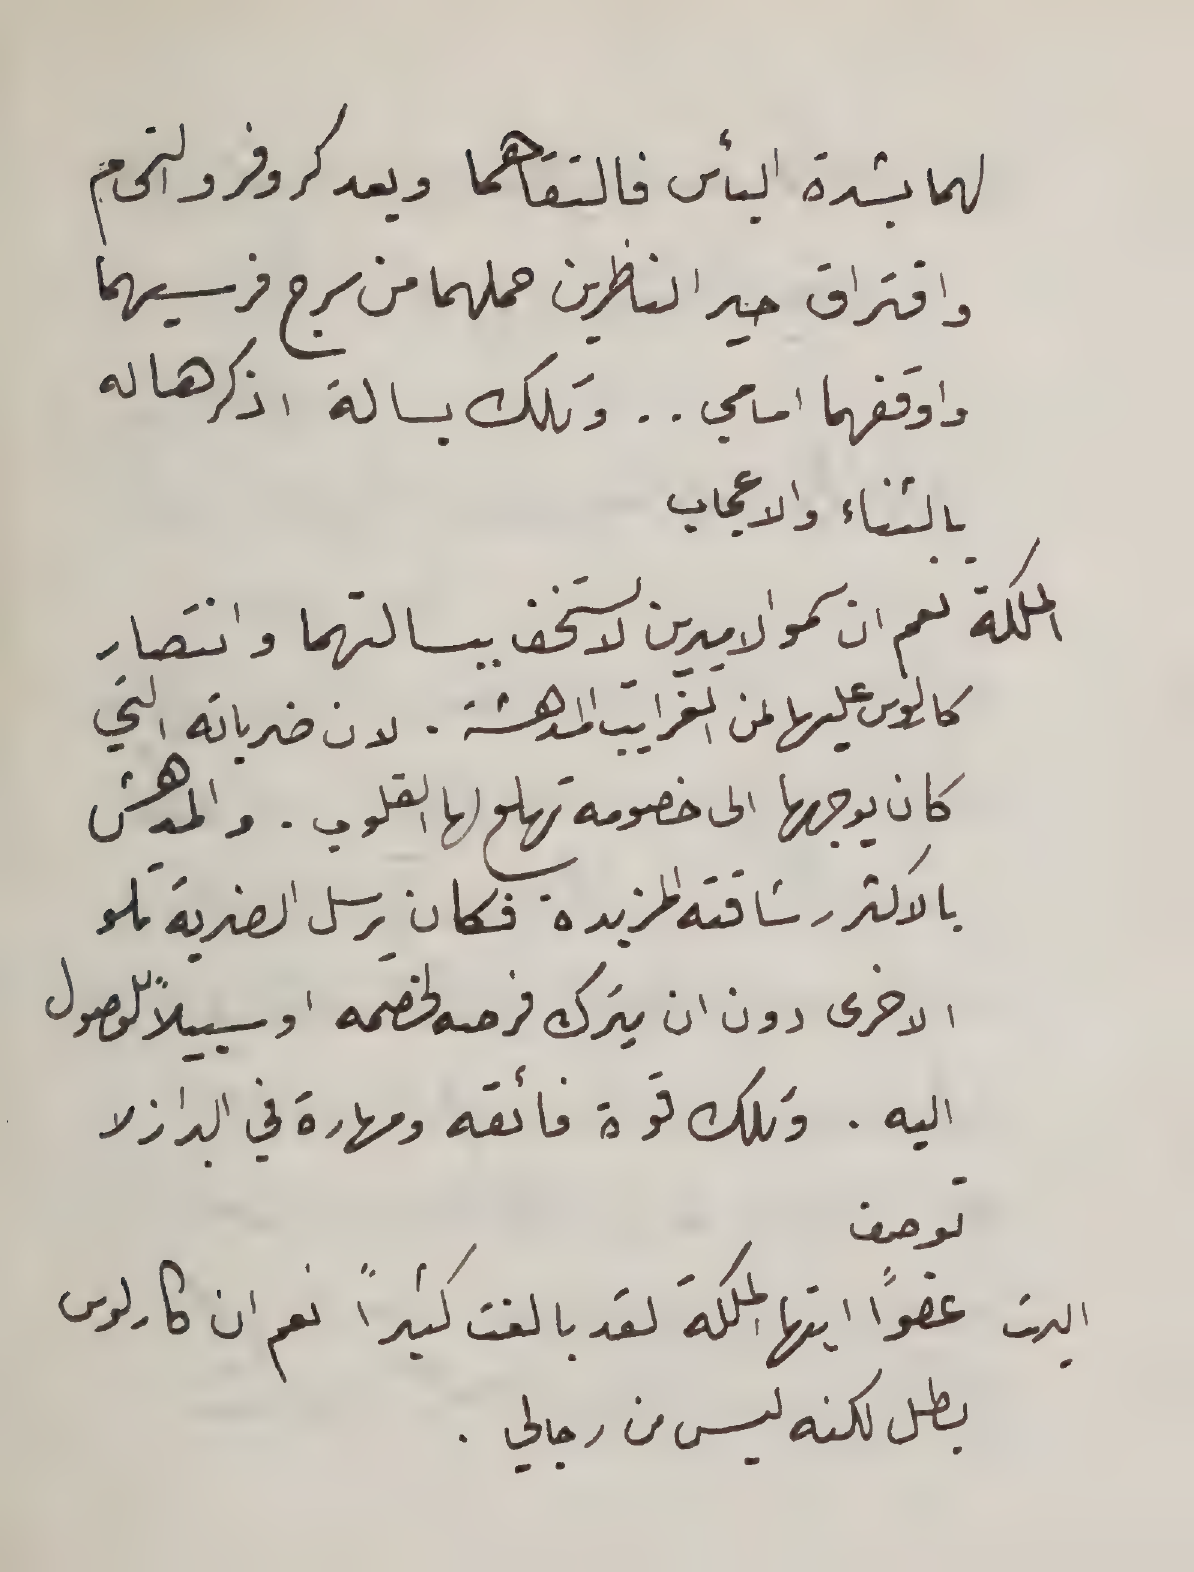 لهما بشدة البأس فالتقاهما وبعد كر وفر والتحام
وافتراق حير الناظرين حملهما من سرج فرسيهما
واوقفهما امامي .. وتلك بسالة اذكرها له
بالثناء والاعجاب
الملكة نعم ان سمو الاميرين لا تستخف ببسالتهما وانتصار
كارلوس عليهما لمن الغرايب المدهشة . لان ضرباته التي
كان يوجهها الى خصومه تهلع لها القلوب . والمدهش
بالاكثر رشاقته المزيدة فكان يرسل الضربة تلو
الاخرى دون ان يترك فرصه لخصمه او سبيلاً للوصول
اليه . وتلك قوة فائقه ومهارة في البراز لا
توصف
البرت عفواً ايتها الملكة لقد بالغت كثيراً نعم ان كارلوس
بطل لكنه ليس من رجالي .